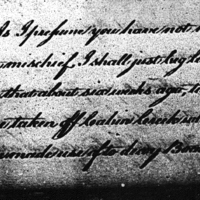 As I presume you have not
mischief, I shall just beg l
that about six weeks ago, t
taken off
made use of to